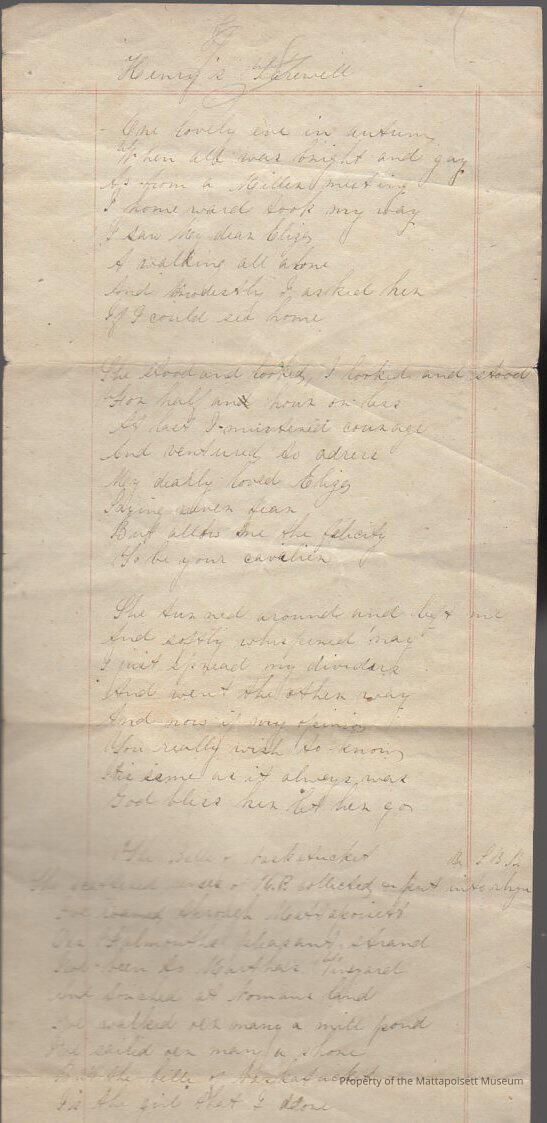 Henry's Farewell
One lovely eve in autum
When all was bright and gay
As from a Millen meeting
I home ward took my way
I saw my dear Eliza
A walking all alone
And modestly I asked her
If I could see home
She stood and looked, I looked and stood
For half and hour or less
At last I mustered courage
And ventured to adress
My dearly loved Eliza
Saying never fear
But allow me the felicity
To be your cavalier
She turned around and left me
And softly whispered nay
I just spread my dividers
And went the other way
And now if my opinion
You really wish to know
Tis same as it always was
God bless her let her go
The Belle of Naskatucket By S.B.
The scattered verses of H.P. collected & put into rhyme
I've roamed through Mattapoisett
On Falmouths pleasant strand
I've been to Marthas Vineyard
and touched at Nomans land
I've walked oer many a mill pond
I've sailed oer many a shore
But the belle of Naskatucket
Is the girl that I adore
Property of the Mattapoisett Museum